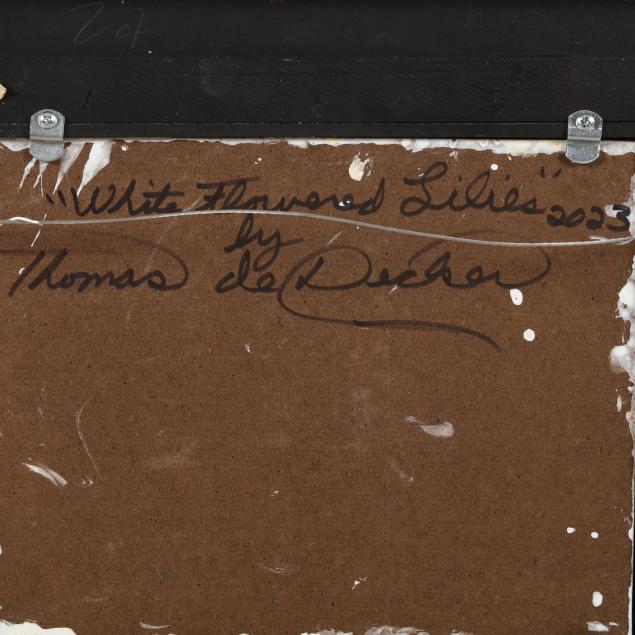 24
"White Flowered Lilies" 2023
by
Thomas de Decker